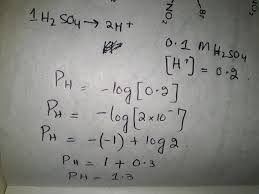 1 H2SO4 → 2H+
NO2
Br
NO2
0.1 M H2SO4
[H+] = 0.2.
PH = -log[0.2]
PH = -log[2×10-7]
PH = -(-1) + log2
PH = 1 + 0.3
PH = 1.3